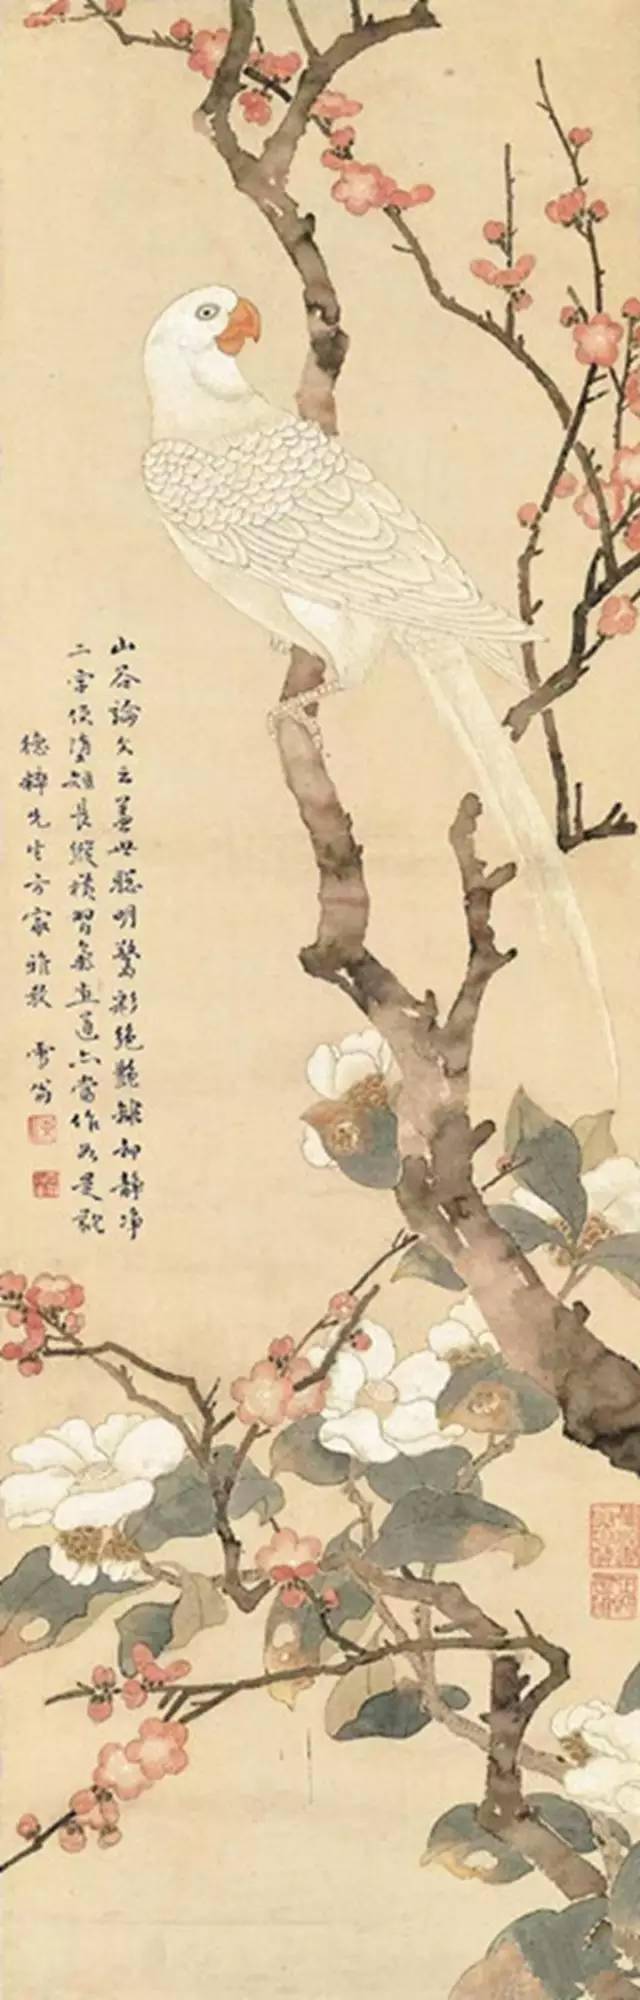 山谷論文云蓋世聰明驚彩絕艷離却靜净
二字便墮短長縱橫習氣畫道亦當作如是觀
先生方家雅教 雪翁